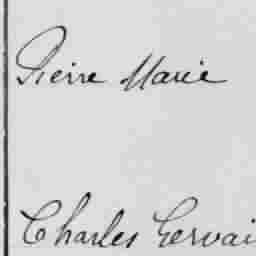 Pierre Marie
Charles Gervai